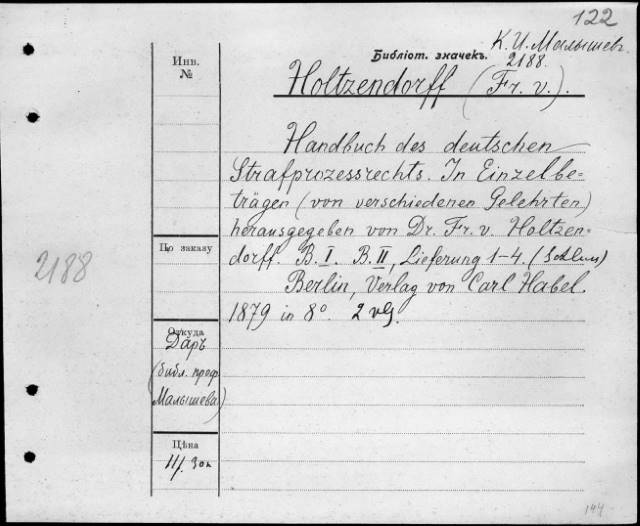 122
К. И. Малышев.
Библіот. значекъ. 2188.
Инв. №
Holtzendorff (Fr. v.).
Handbuch des deutschen
Strafprozessrechts. In Einzelbe-
trägen (von verschiedenen Gelehrten)
herausgegeben von Dr. Fr. v. Holtzen-
dorff. B. I. B. II, Lieferung 1-4. (Schluss)
Berlin, Verlag von Carl Habel.
1879 in 8° 2
По заказу
2188
Откуда
Даръ
(библ. проф.
Малышева)
Цѣна
144